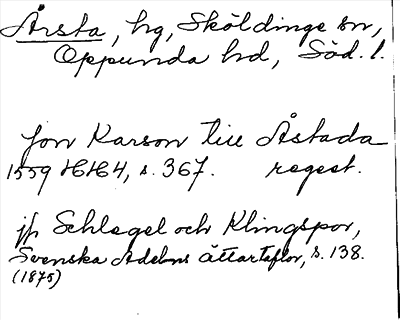 Årsta, hg, Sköldinge sn,
Oppunda hd, Söd. l.
Jon Karson till Åstada
1559 HH4, s. 367. regest.
jfr Schlegel och Klingspor,
Svenska Adelns ättartaflor, s. 138.
(1875)